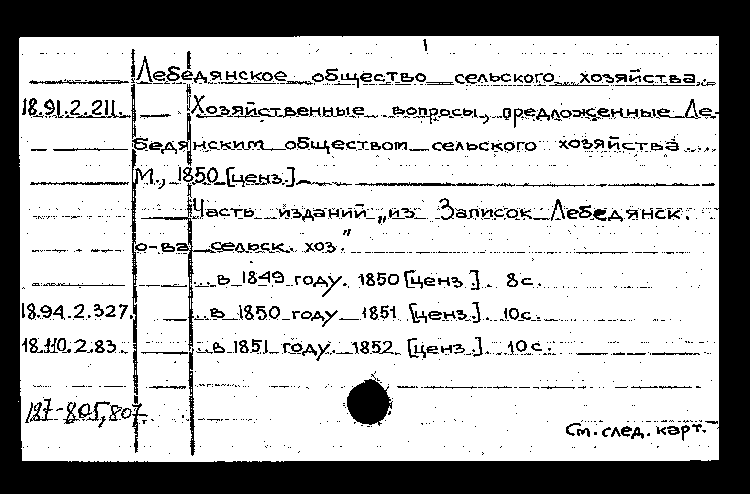 Лебедянское общество сельского хозяйства.
18.91.2.211. Хозяйственные вопросы, предложенные Ле-
бедянским обществом сельского хозяйства ...
М., 1850 [ценз.]
Часть изданий „из Записок Лебедянск.
о-ва сельск. хоз."
... в 1849 году. 1850 [ценз.]. 8 с.
18.94.2.327. ... в 1850 году 1851 [ценз.]. 10 с.
18.110.2.83. ... в 1851 году. 1852 [ценз.]. 10 с.
187-805,807.
См. след. карт.